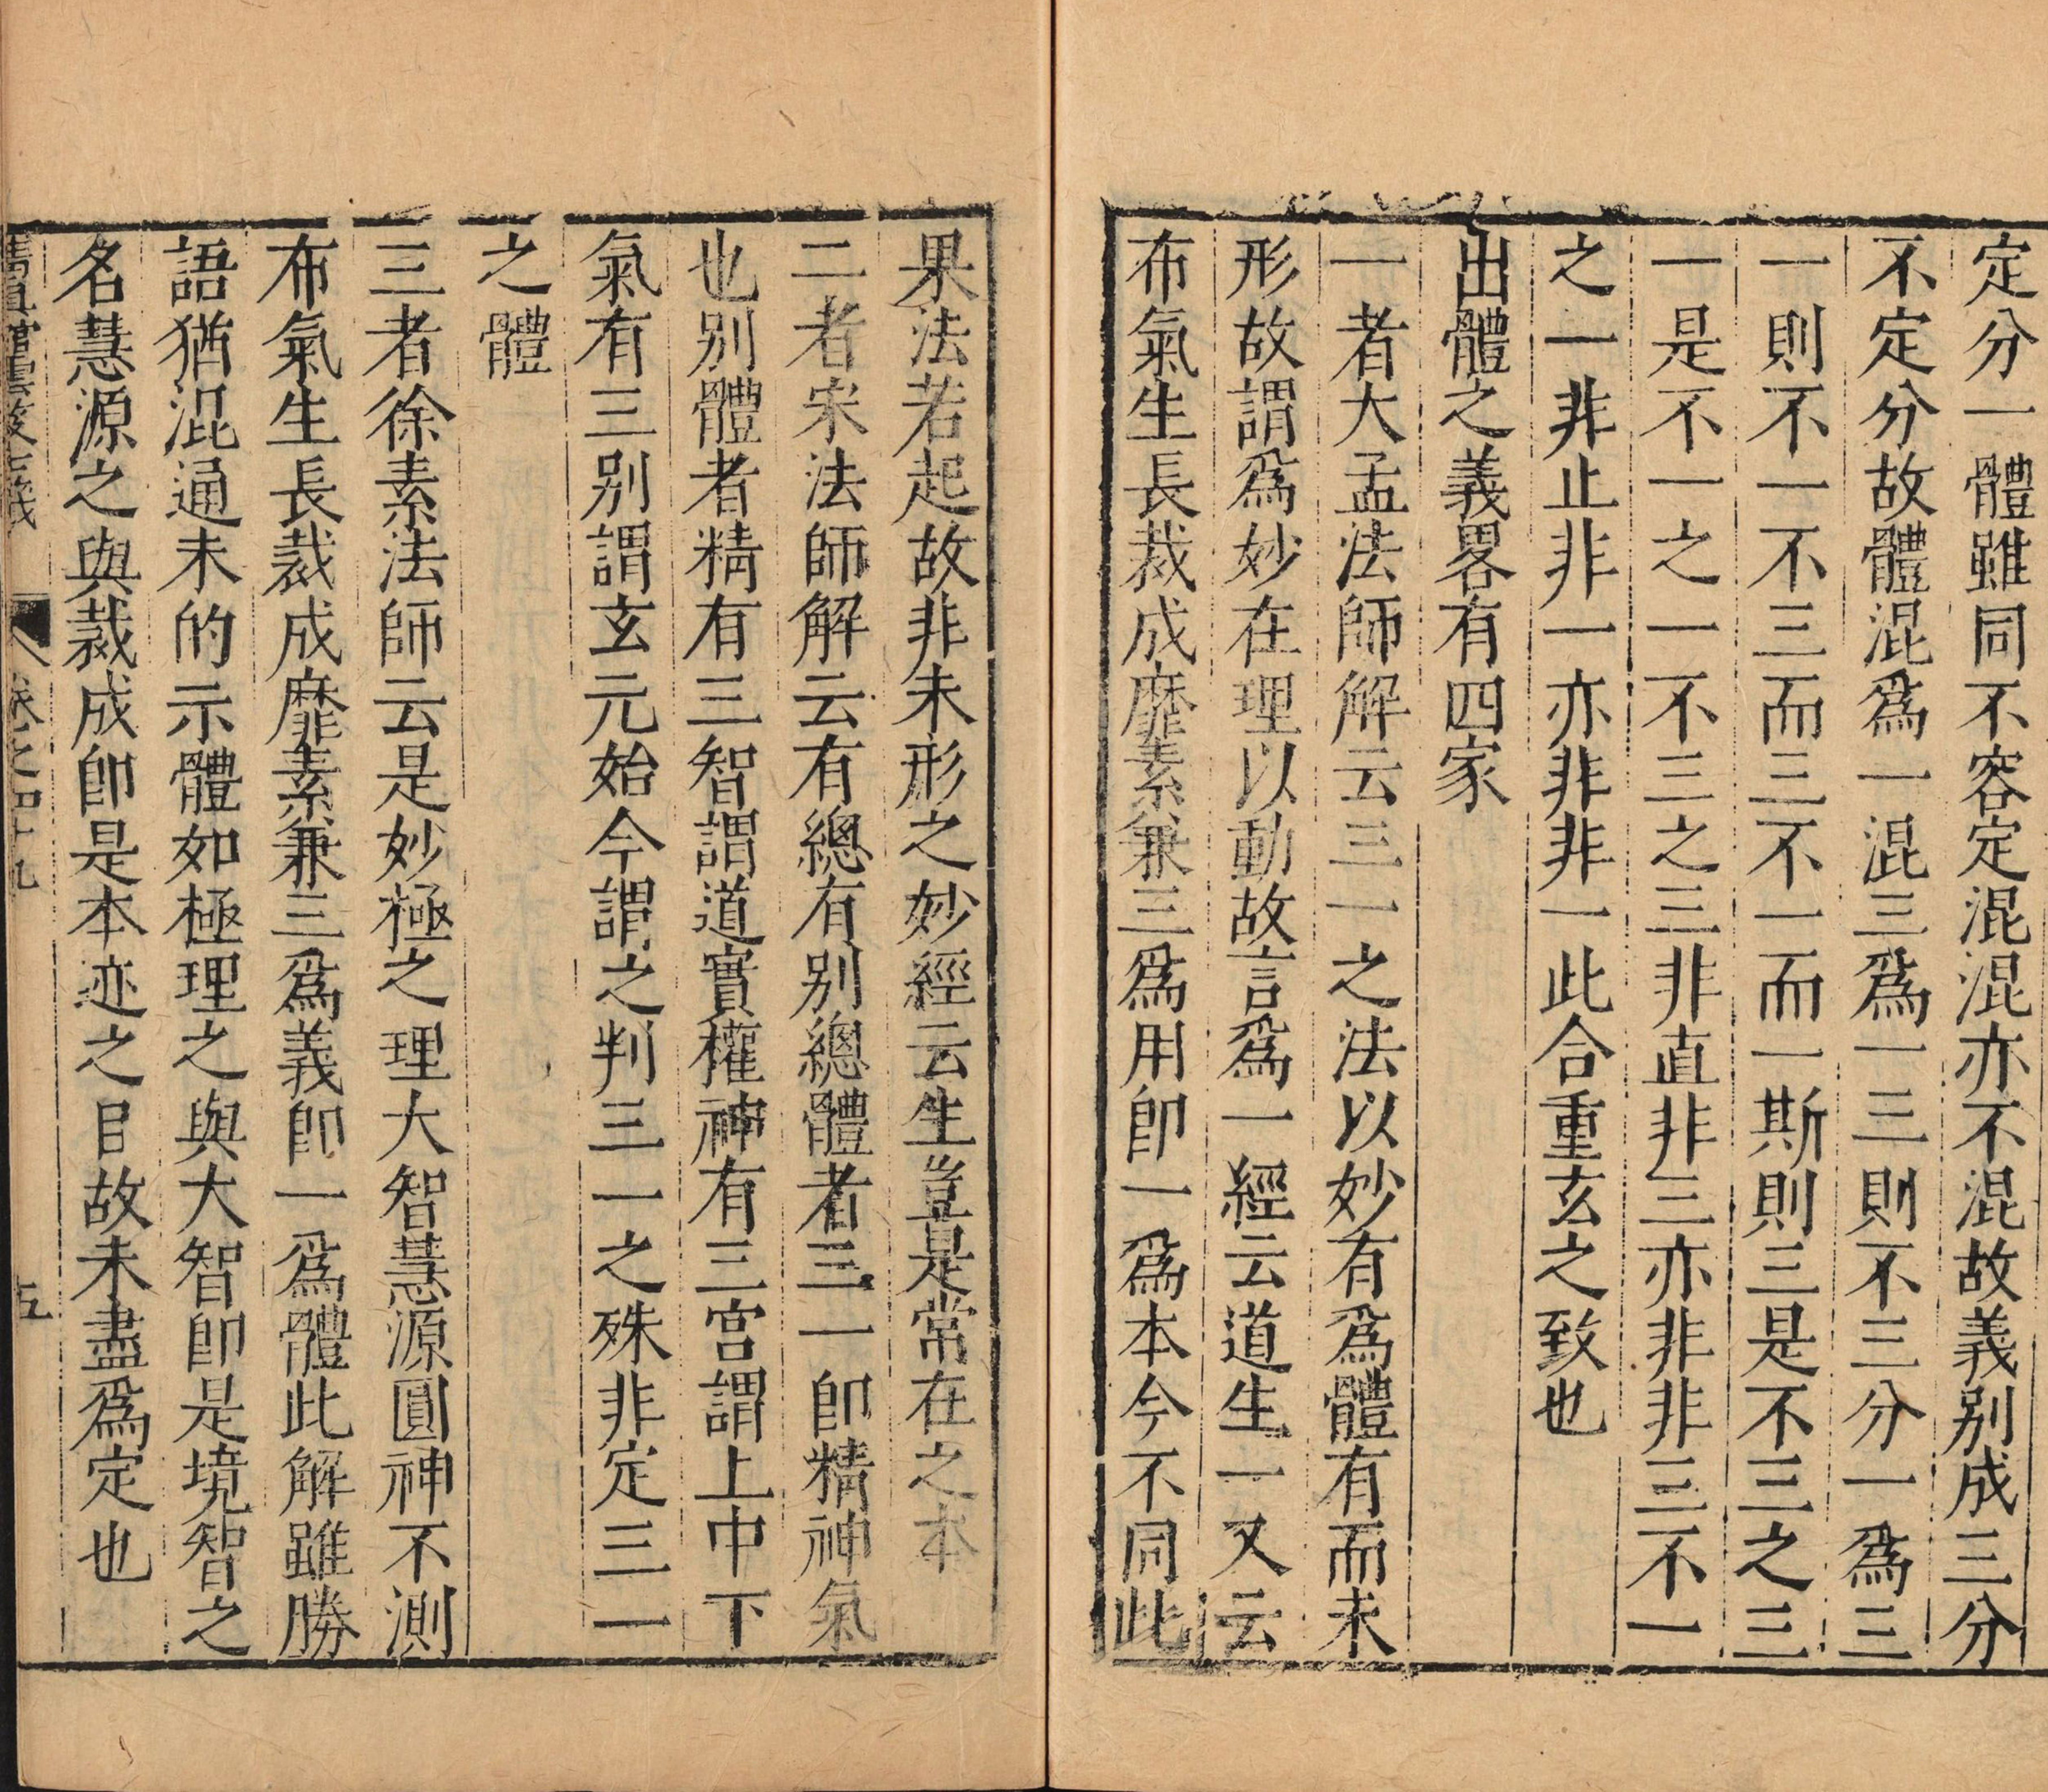 定分一體雖同不容定混混亦不混故義別成三分
不定分故體混爲一混三爲一三則不三分一爲三
一則不一不三而三不一而一斯則三是不三之三
一是不一之一不三之三非直非三亦非非三不一
之一非止非一亦非非一此合重玄之致也
出體之義畧有四家
一者大孟法師解云三一之法以妙有爲體有而未
形故謂爲妙在理以動故言爲一經云道生一又云
布氣生長裁成靡素兼三爲用卽一爲本今不同此
果法若起故非未形之妙經云生豈是常在之本
二者宋法師解云有總有別總體者三一卽精神氣
也別體者精有三智謂道實權神有三宮謂上中下
氣有三別謂玄元始今謂之判三一之殊非定三一
之體
三者徐素法師云是妙極之理大智慧源圓神不測
布氣生長裁成靡素兼三爲義卽一爲體此解雖勝
語猶混通未的示體如極理之與大智卽是境智之
名慧源之與裁成卽是本迹之目故未盡爲定也
清眞館雲笈七籤 卷之四十九 五